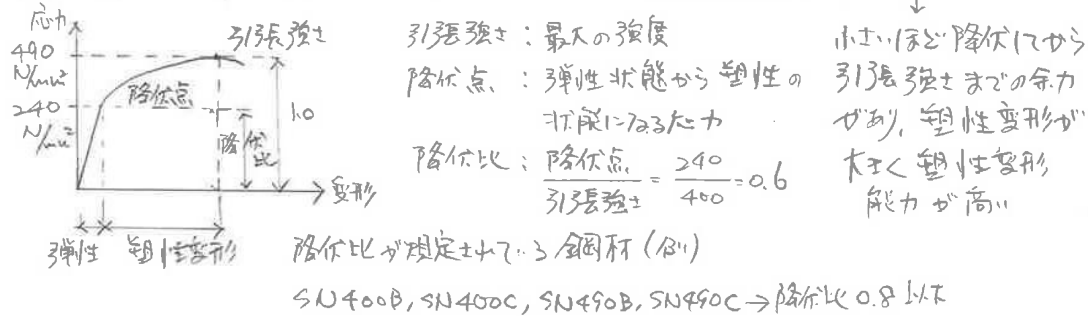 応力
490
N/mm²
240
N/mm²
引張強さ
降伏点
降伏比
1.0
変形
弾性 塑性変形
引張強さ：最大の強度
降伏点：弾性状態から塑性の
状態になる応力
降伏比：降伏点/引張強さ = 240/400 = 0.6
↓
小さいほど降伏してから
引張強さまでの余力
があり、塑性変形が
大きく塑性変形
能力が高い
降伏比が規定されている鋼材(例)
SN400B, SN400C, SN490B, SN490C→降伏比0.8以下